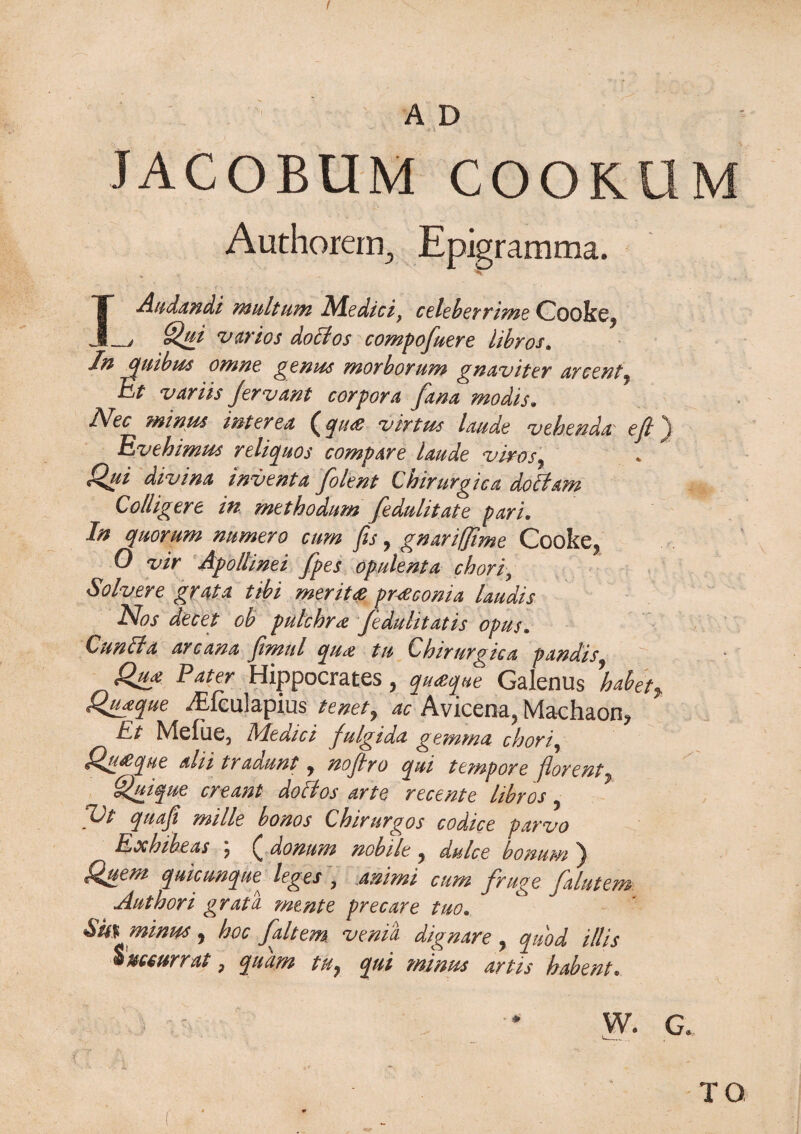 A D
JACOBUM COOKUM
Authorem, Epigramma.
LAudandi multum Medici, celeberrime Cooke,
Qui varios doctos compoſuere libros.
In quibus omne genus morborum gnaviter arcent,
Et variis ſervant corpora ſana modis.
Nec minus interea (quæ virtus laude vehenda eſt)
Evehimus reliquos compare laude viros,
Qui divina inventa ſolent Chirurgica doctam
Colligere in methodum ſedulitate pari.
In quorum numero cum ſis, gnariſſime Cooke,
O vir Apollinei ſpes opulenta chori,
Solvere grata tibi meritæ præconia laudis
Nos decet ob pulchræ ſedulitatis opus.
Cuncta arcana ſimul quæ tu Chirurgica pandis,
Quæ Pater Hippocrates, quæque Galenus habet,
Quæque Æſculapius tenet, ac Avicena, Machaon,
Et Meſue, Medici fulgida gemma chori,
Quæque alii tradunt, noſtro qui tempore florent,
Quique creant doctos arte recente libros,
Ut quaſi mille bonos Chirurgos codice parvo
Exhibeas; (donum nobile, dulce bonum)
Quem quicunque leges, animi cum fruge ſalutem
Authori gratâ mente precare tuo.
Sin minus, hoc ſaltem veniâ dignare, quòd illis
Succurrat, quàm tu, qui minus artis habent.
* W. G.
TO